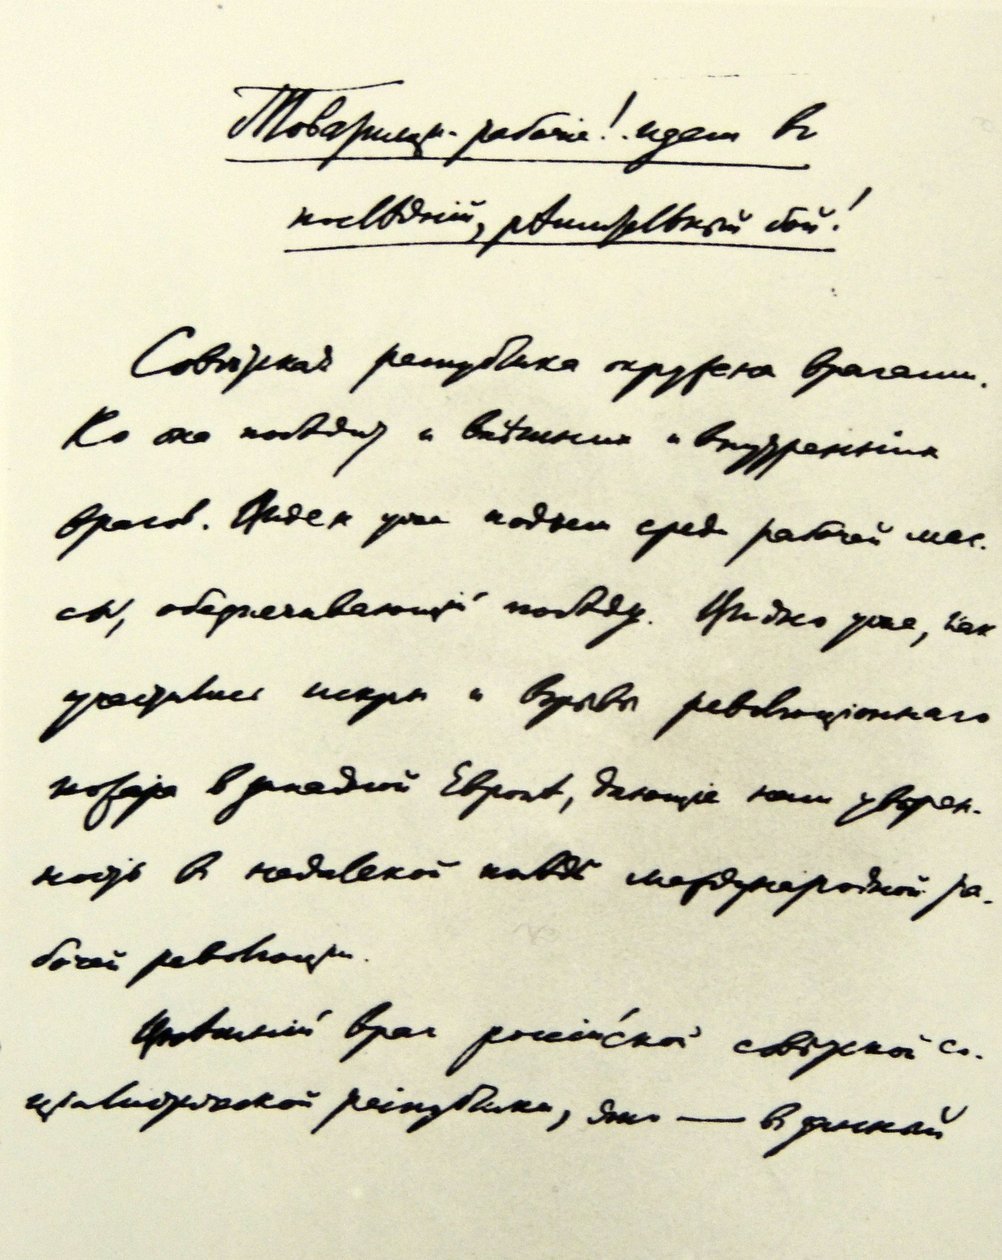 Товарищи-рабочіе! идем в
послѣдній, рѣшительный бой!
Совѣтская республика окружена врагами.
Но она побѣдит и внѣшних и внутренних
врагов. Виден уже подъем среди рабочей мас-
сы, обезпечивающій побѣду. Видно уже, как
участились искры и взрывы революціоннаго
пожара в западной Европѣ, дающіе нам уверен-
ность в недалекой побѣдѣ международной ра-
бочей революціи.
Внѣшній враг россійской совѣтской со-
ціалистической республики, это — в данный